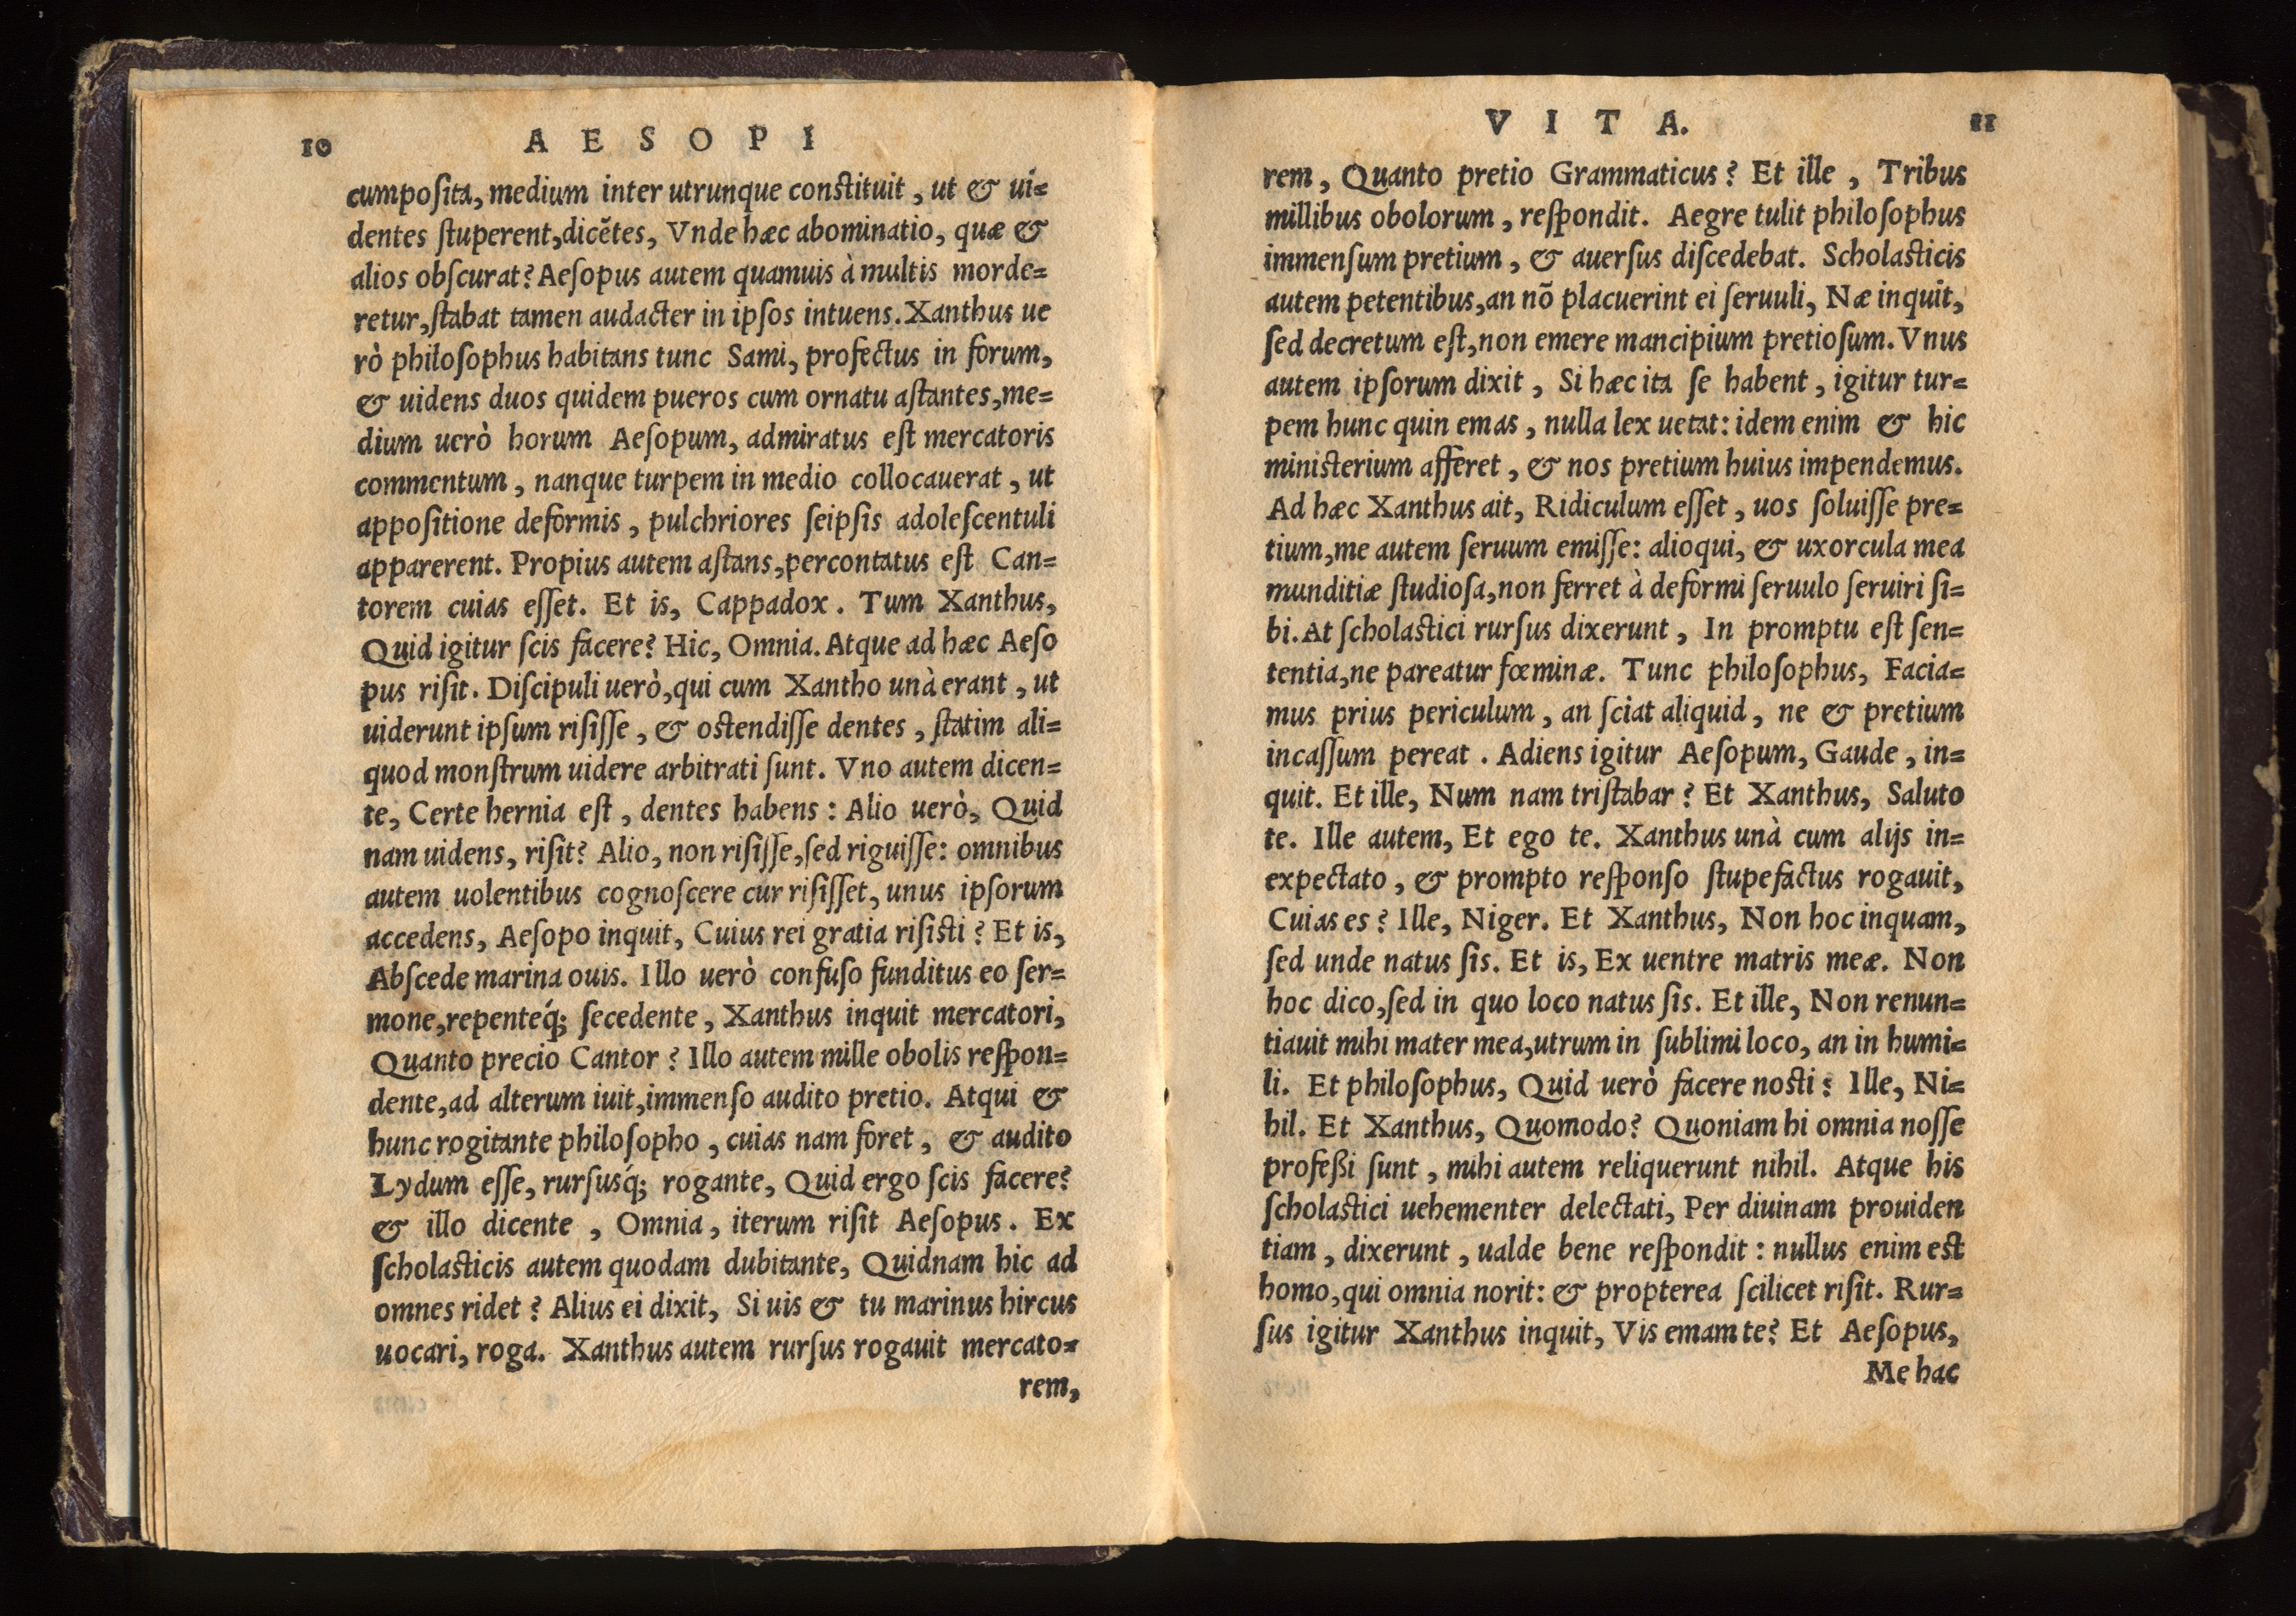 10 AESOPI
cumpoſita, medium inter utrunque conſtituit, ut & ui=
dentes ſtuperent, dicẽtes, Vnde hæc abominatio, quæ &
alios obſcurat? Aeſopus autem quamuis à multis morde=
retur, ſtabat tamen audacter in ipſos intuens. Xanthus ue
rò philoſophus habitans tunc Sami, profectus in forum,
& uidens duos quidem pueros cum ornatu aſtantes, me=
dium uerò horum Aeſopum, admiratus eſt mercatoris
commentum, nanque turpem in medio collocauerat, ut
appoſitione deformis, pulchriores ſeipſis adoleſcentuli
apparerent. Propius autem aſtans, percontatus eſt Can=
torem cuias eſſet. Et is, Cappadox. Tum Xanthus,
Quid igitur ſcis facere? Hic, Omnia. Atque ad hæc Aeſo
pus riſit. Diſcipuli uerò, qui cum Xantho unà erant, ut
uiderunt ipſum riſiſſe, & oſtendiſſe dentes, ſtatim ali=
quod monſtrum uidere arbitrati ſunt. Vno autem dicen=
te, Certe hernia eſt, dentes habens: Alio uerò, Quid
nam uidens, riſit? Alio, non riſiſſe, ſed riguiſſe: omnibus
autem uolentibus cognoſcere cur riſiſſet, unus ipſorum
accedens, Aeſopo inquit, Cuius rei gratia riſiſti? Et is,
Abſcede marina ouis. Illo uerò confuſo funditus eo ſer=
mone, repenteq́; ſecedente, Xanthus inquit mercatori,
Quanto precio Cantor? Illo autem mille obolis reſpon=
dente, ad alterum iuit, immenſo audito pretio. Atqui &
hunc rogitante philoſopho, cuias nam foret, & audito
Lydum eſſe, rurſusq́; rogante, Quid ergo ſcis facere?
& illo dicente, Omnia, iterum riſit Aeſopus. Ex
ſcholaſticis autem quodam dubitante, Quidnam hic ad
omnes ridet? Alius ei dixit, Si uis & tu marinus hircus
uocari, roga. Xanthus autem rurſus rogauit mercato=
rem,
VITA. 11
rem, Quanto pretio Grammaticus? Et ille, Tribus
millibus obolorum, reſpondit. Aegre tulit philoſophus
immenſum pretium, & auerſus diſcedebat. Scholaſticis
autem petentibus, an nõ placuerint ei ſeruuli, Næ inquit,
ſed decretum eſt, non emere mancipium pretioſum. Vnus
autem ipſorum dixit, Si hæc ita ſe habent, igitur tur=
pem hunc quin emas, nulla lex uetat: idem enim & hic
miniſterium afferet, & nos pretium huius impendemus.
Ad hæc Xanthus ait, Ridiculum eſſet, uos ſoluiſſe pre=
tium, me autem ſeruum emiſſe: alioqui, & uxorcula mea
munditiæ ſtudioſa, non ferret à deformi ſeruulo ſeruiri ſi=
bi. At ſcholaſtici rurſus dixerunt, In promptu eſt ſen=
tentia, ne pareatur fœminæ. Tunc philoſophus, Facia=
mus prius periculum, an ſciat aliquid, ne & pretium
incaſſum pereat. Adiens igitur Aeſopum, Gaude, in=
quit. Et ille, Num nam triſtabar? Et Xanthus, Saluto
te. Ille autem, Et ego te. Xanthus unà cum alijs in=
expectato, & prompto reſponſo ſtupefactus rogauit,
Cuias es? Ille, Niger. Et Xanthus, Non hoc inquam,
ſed unde natus ſis. Et is, Ex uentre matris meæ. Non
hoc dico, ſed in quo loco natus ſis. Et ille, Non renun=
tiauit mihi mater mea, utrum in ſublimi loco, an in humi=
li. Et philoſophus, Quid uerò facere noſti? Ille, Ni=
hil. Et Xanthus, Quomodo? Quoniam hi omnia noſſe
profeßi ſunt, mihi autem reliquerunt nihil. Atque his
ſcholaſtici uehementer delectati, Per diuinam prouiden
tiam, dixerunt, ualde bene reſpondit: nullus enim eſt
homo, qui omnia norit: & propterea ſcilicet riſit. Rur=
ſus igitur Xanthus inquit, Vis emam te? Et Aeſopus,
Me hac